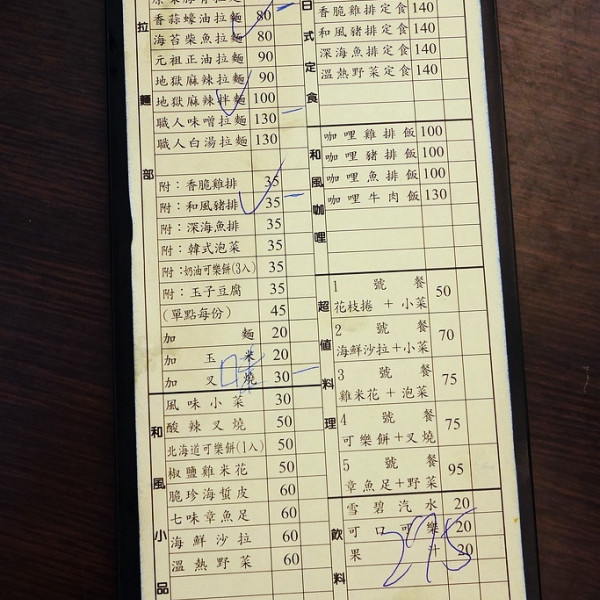 拉麵部
香蒜蠔油拉麵 80
海苔柴魚拉麵 80
元祖正油拉麵 90
地獄麻辣拉麵 90
地獄麻辣拌麵 100
職人味噌拉麵 130
職人白湯拉麵 130
附：香脆雞排 35
附：和風豬排 35
附：深海魚排 35
附：韓式泡菜 35
附：奶油可樂餅(3入) 35
附：玉子豆腐 35
(單點每份) 45
加麵 20
加玉米 20
加叉燒 30
和風小品
風味小菜 30
酸辣叉燒 50
北海道可樂餅(1入) 50
椒鹽雞米花 50
脆珍海蜇皮 60
七味章魚足 60
海鮮沙拉 60
溫熱野菜 60
日式定食
香脆雞排定食 140
和風豬排定食 140
深海魚排定食 140
溫熱野菜定食 140
和風咖哩
咖哩雞排飯 100
咖哩豬排飯 100
咖哩魚排飯 100
咖哩牛肉飯 130
超值料理
1號餐
花枝捲＋小菜 50
2號餐
海鮮沙拉＋小菜 70
3號餐
雞米花＋泡菜 75
4號餐
可樂餅＋叉燒 75
5號餐
章魚足＋野菜 95
飲料
雪碧汽水 20
可口可樂 20
果汁 20
295